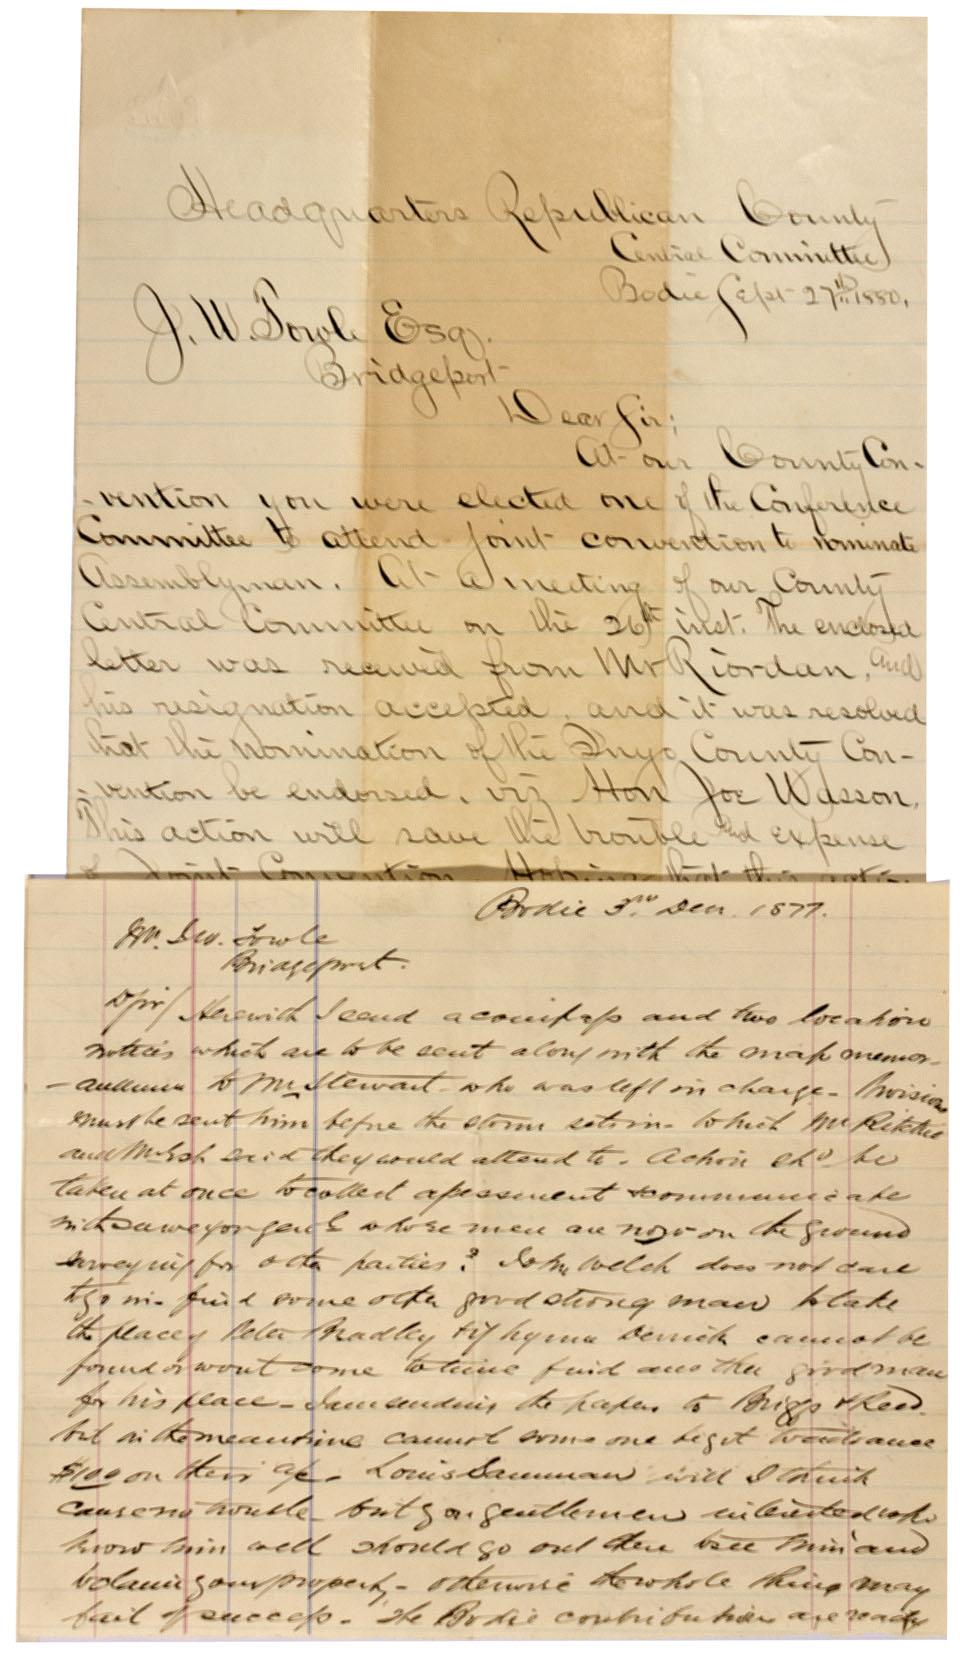 Headquarters Republican County
Central Committee
Bodie Sept 27th 1880.
J. W. Towle Esq.
Bridgeport
Dear Sir;
At our County Con-
-vention you were elected one of the Conference
Committee to attend Joint convention to nominate
Assemblyman. At a meeting of our County
Central Committee on the 26th inst. The enclosed
letter was received from Mr Riordan, and
his resignation accepted, and it was resolved
that the nomination of the Inyo County Con-
-vention be endorsed, viz Hon Joe Wasson.
This action will save the trouble and expense
of Joint Convention. Hoping that this
Bodie 3rd Dec. 1877.
Mr. Towle
Bridgeport.
D Sir/ Herewith I send a compass and two location
notices which are to be sent along with the map memor-
-andum to Mr Stewart who was left in charge -
must be sent him before the storm sets in - to which Mr Ritchie
and said they would attend to. Action shd be
taken at once to collect assessment & communicate
with surveyor genl whose men are now on the ground
surveying for other parties? John Welch does not care
to go in - find some other good strong man to take
the place of Peter Bradley & if Derrick cannot be
found or wont come to time find another good man
for his place - I am sending the papers to Briggs & Reed.
but in the meantime cannot some one be got to advance
$100 on their a/c. Louis will I think
cause no trouble but you gentlemen interested who
know him well should go out there & see him and
reclaim your property - otherwise the whole thing may
fail of success. The Bodie contributions are ready